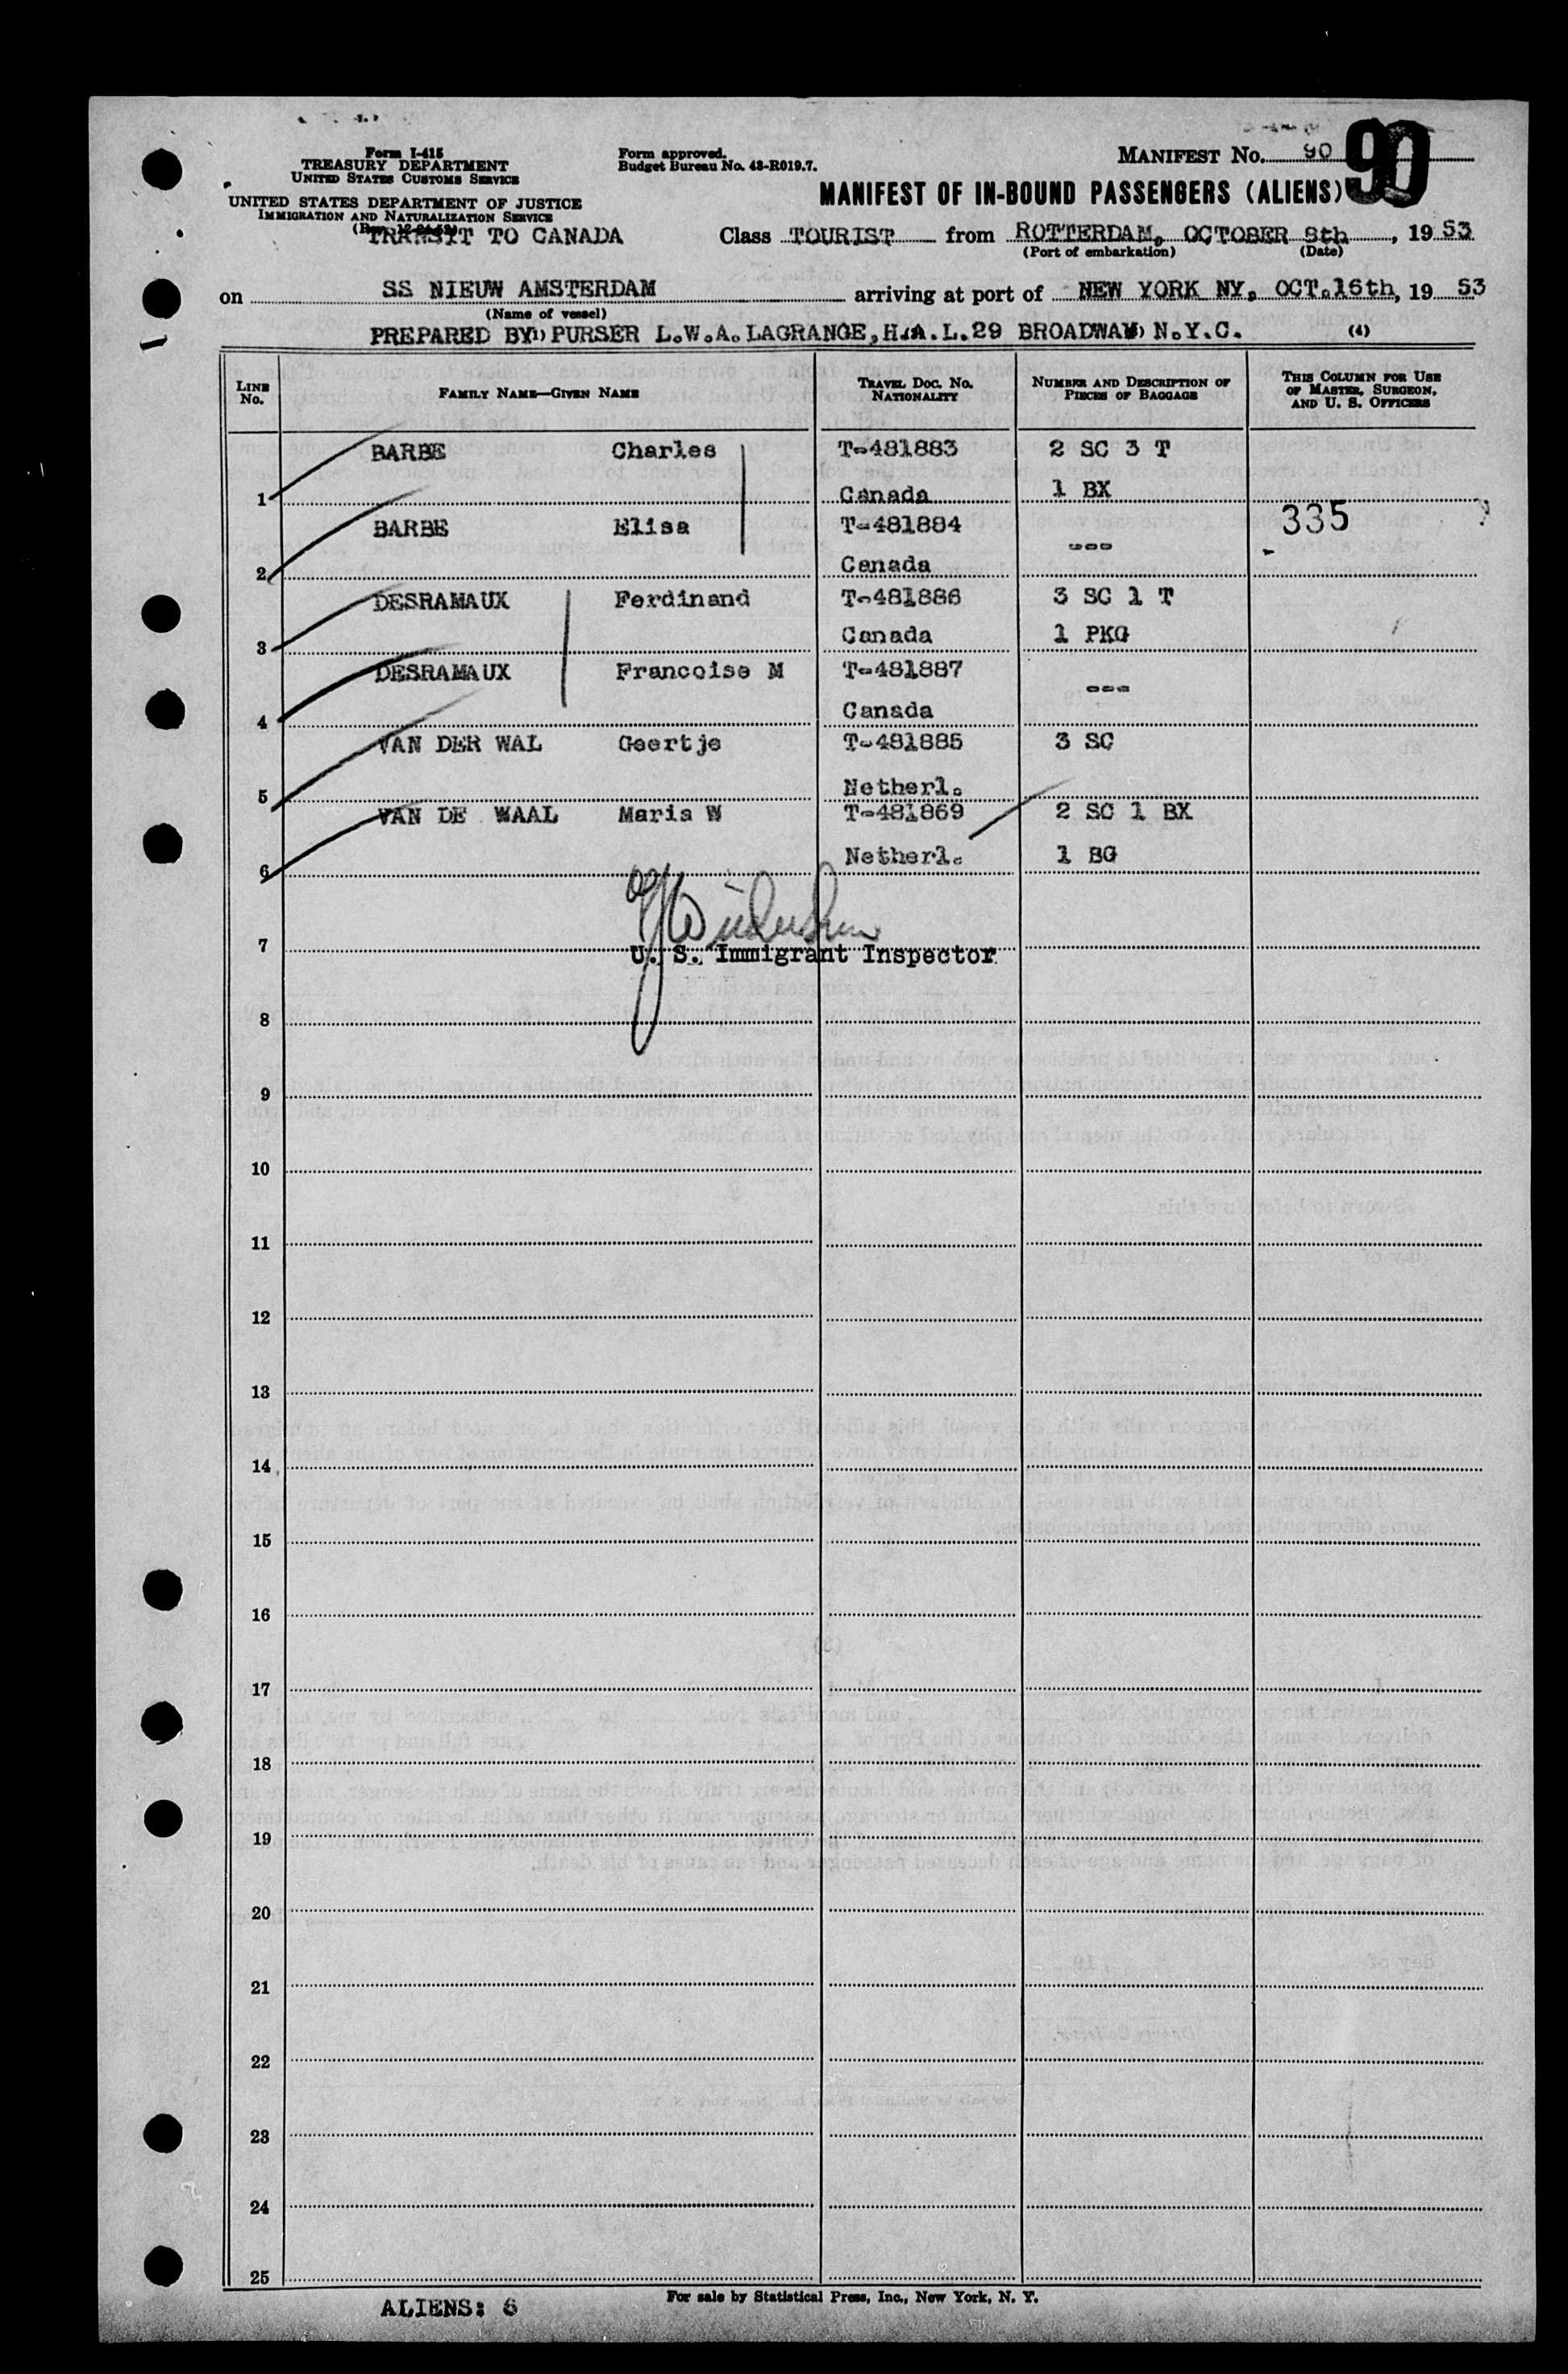 Form I-415
TREASURY DEPARTMENT
UNITED STATES CUSTOMS SERVICE
UNITED STATES DEPARTMENT OF JUSTICE
IMMIGRATION AND NATURALIZATION SERVICE
TRANSIT TO CANADA
Form approved.
Budget Bureau No. 43-R019.7.
MANIFEST NO. 90 90
MANIFEST OF IN-BOUND PASSENGERS (ALIENS)
Class TOURIST from ROTTERDAM, OCTOBER 8th, 19 53
(Port of embarkation) (Date)
on SS NIEUW AMSTERDAM arriving at port of NEW YORK NY, OCT.16th, 19 53
(Name of vessel)
PREPARED BY PURSER L.W.A. LAGRANGE, H.A.L. 29 BROADWAY N.Y.C. (4)
LINE NO. FAMILY NAME—GIVEN NAME TRAVEL DOC. NO. NATIONALITY NUMBER AND DESCRIPTION OF PIECES OF BAGGAGE THIS COLUMN FOR USE OF MASTER, SURGEON, AND U. S. OFFICERS
BARBE Charles T-481883 2 SC 3 T
1 Canada 1 BX
BARBE Elisa T-481884 --- 335
2 Canada
DESRAMAUX Ferdinand T-481886 3 SC 1 T
3 Canada 1 PKG
DESRAMAUX Francoise M T-481887 ---
4 Canada
VAN DER WAL Geertje T-481885 3 SC
5 Netherl.
VAN DE WAAL Maria W T-481869 2 SC 1 BX
6 Netherl. 1 BG
7 U. S. Immigrant Inspector
8
9
10
11
12
13
14
15
16
17
18
19
20
21
22
23
24
25
ALIENS: 6
For sale by Statistical Press, Inc., New York, N. Y.